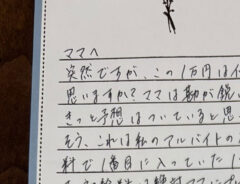 ママへ
突然ですが、この1万円は
思いますか?ママは勘が鋭い
きっと予想はついていると思
そう、これは私のアルバイトの
料で1番目に入っていた1